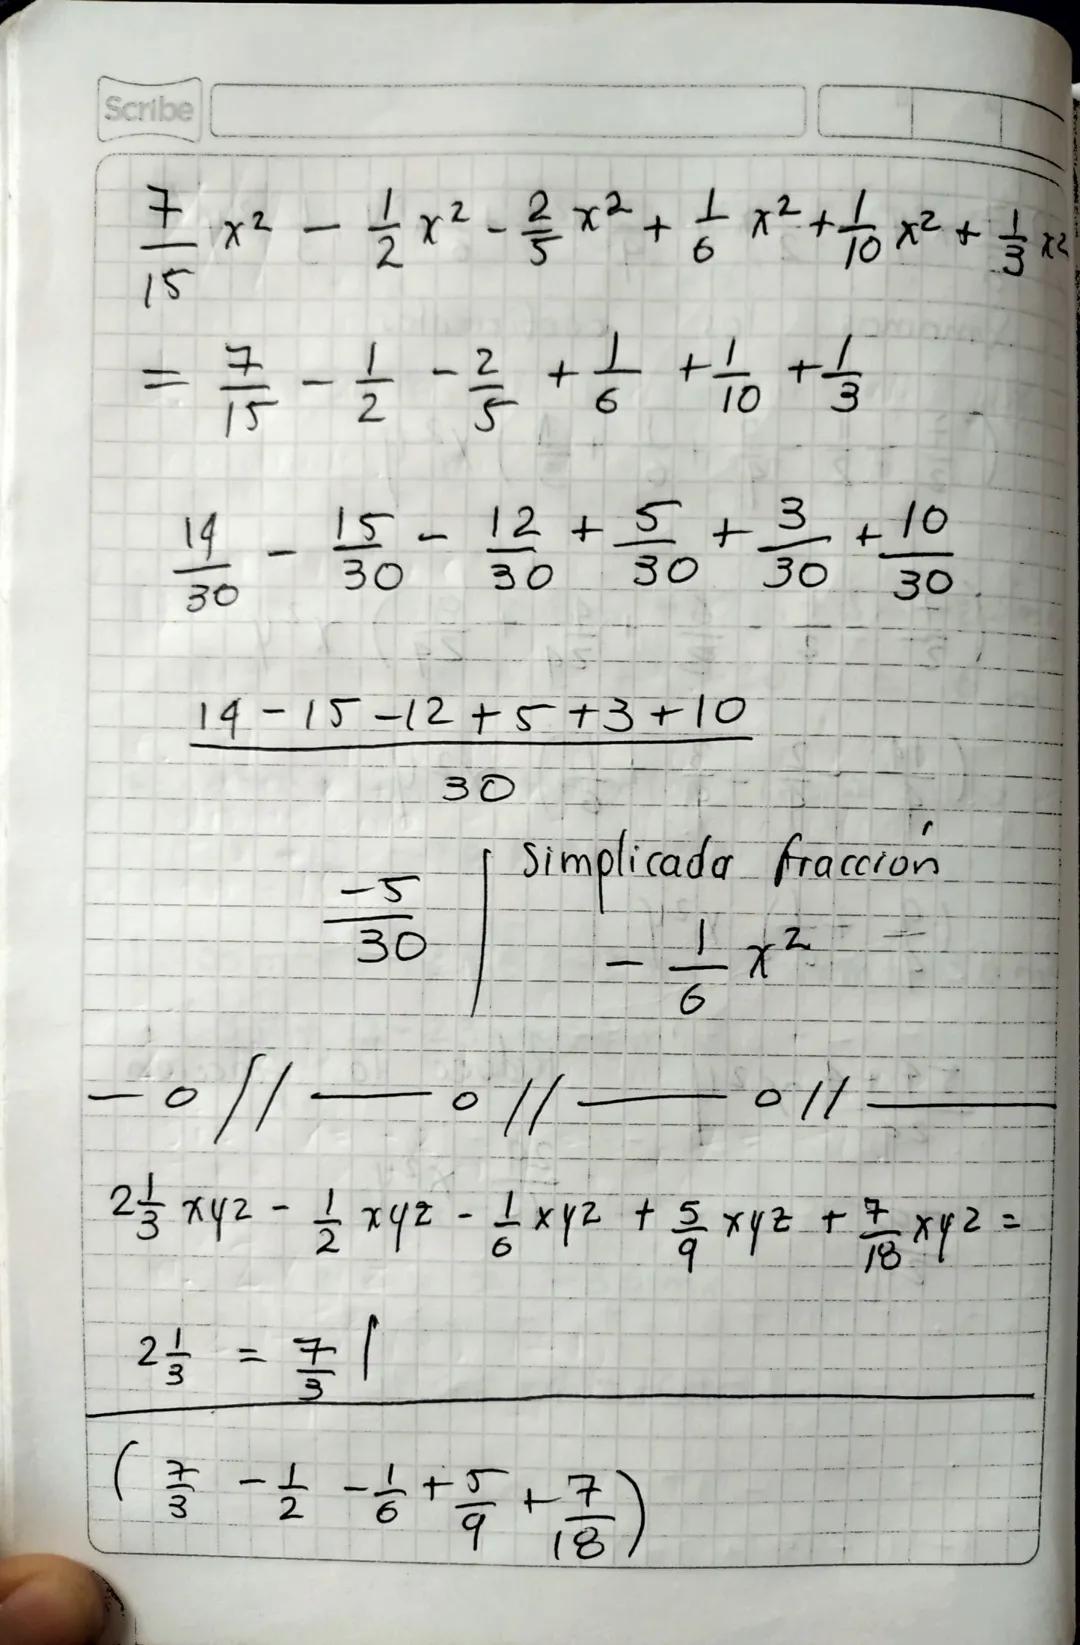 Scribe
7/15 x² - 1/2 x² - 2/5 x² + 1/6 x² + 1/10 x² + 1/3 x²
= 7/15 - 1/2 - 2/5 + 1/6 + 1/10 + 1/3
14/30 - 15/30 - 12/30 + 5/30 + 3/30 + 10/30
14 - 15 - 12 + 5 + 3 + 10 / 30
-5/30 | Simplicada fracción
- 1/6 x²
— o // —— o // —— o // ——
2 1/3 xyz - 1/2 xyz - 1/6 xyz + 5/9 xyz + 7/18 xyz =
2 1/3 = 7/3 |
( 7/3 - 1/2 - 1/6 + 5/9 + 7/18 )